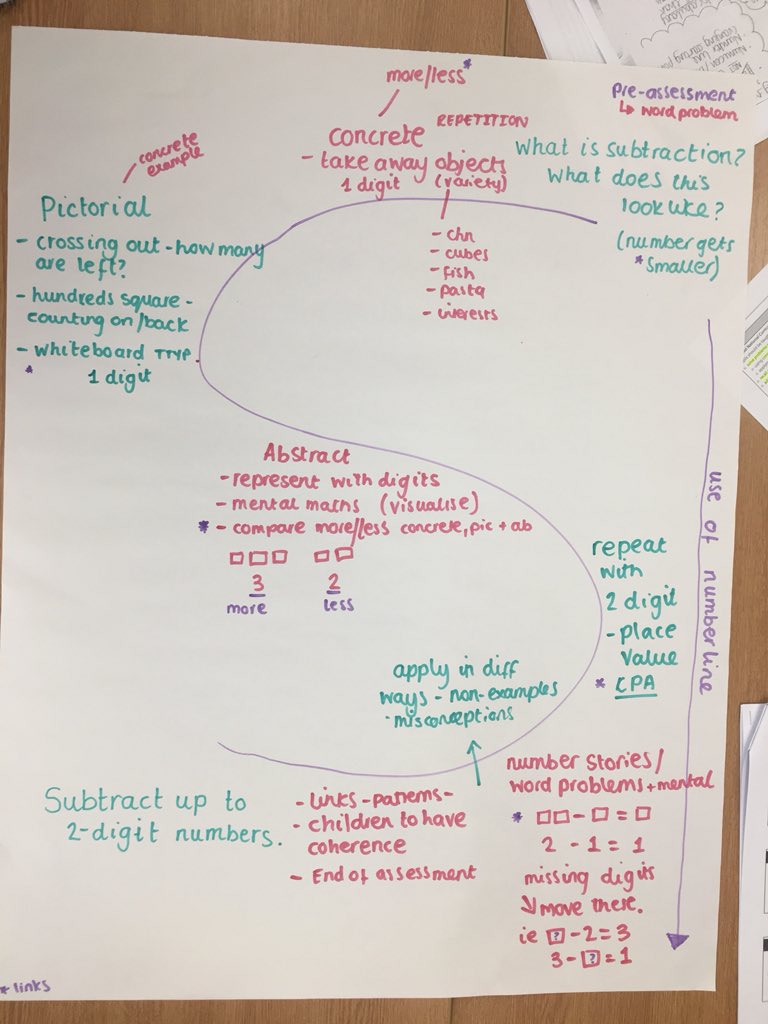 pre-assessment
↳ word problem
What is subtraction?
What does this
look like?
(number gets
* smaller)
more/less *
concrete REPETITION
- take away objects
1 digit (variety)
- chn
- cubes
- fish
- pasta
- interests
concrete
example
Pictorial
- crossing out - how many
are left?
- hundreds square -
counting on/back
- whiteboard TTYP
* 1 digit
Abstract
- represent with digits
- mental maths (visualise)
* - compare more/less concrete, pic + ab
□□□ □□
3 2
more less
repeat
with
2 digit
- place
value
* CPA
use of numberline
apply in diff
ways - non-examples
· misconceptions
number stories/
word problems + mental
* □□ - □ = □
2 - 1 = 1
missing digits
↓ move there.
ie ? - 2 = 3
3 - ? = 1
- Links - patterns -
- children to have
coherence
- End of assessment
Subtract up to
2-digit numbers.
* links